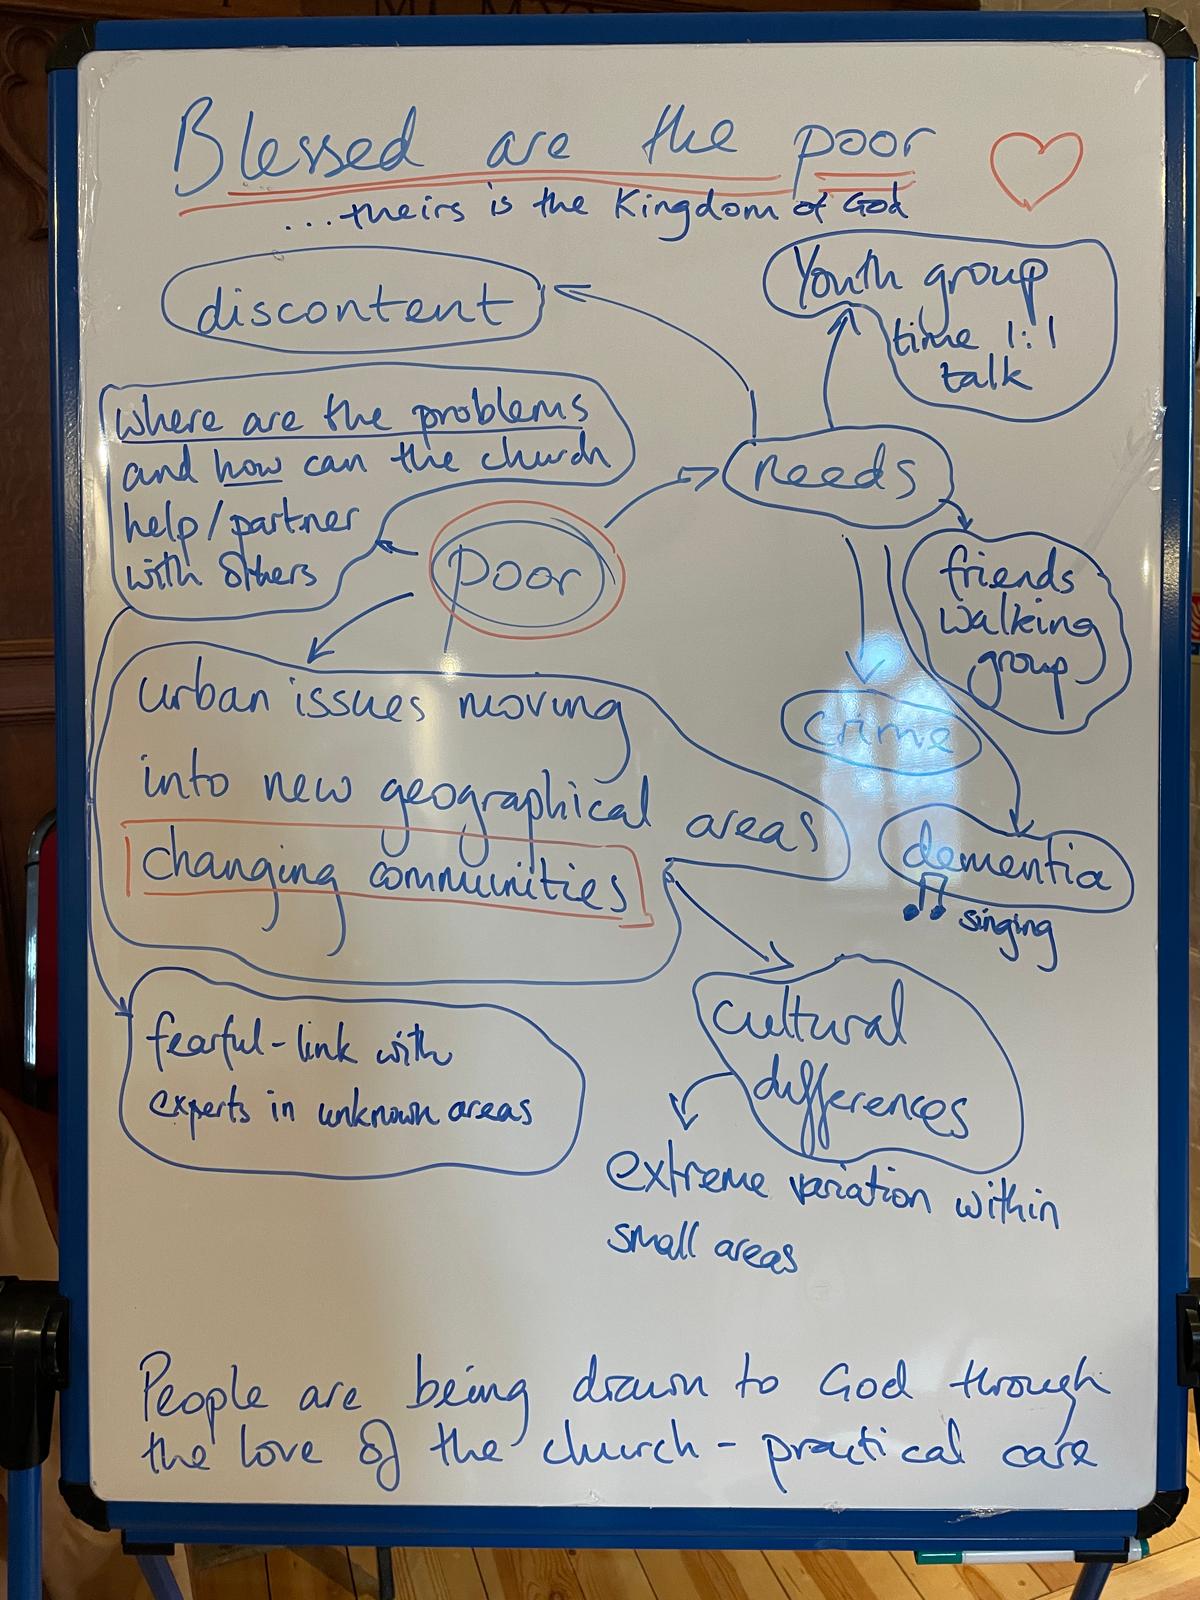 Blessed are the poor
...theirs is the Kingdom of God
discontent
Youth group
time 1:1
talk
where are the problems
and how can the church
help/partner
with others
needs
poor
friends
walking
group
urban issues moving
into new geographical areas
changing communities
crime
dementia
singing
fearful-link with
experts in unknown areas
cultural
differences
extreme variation within
small areas
People are being drawn to God through
the love of the church - practical care